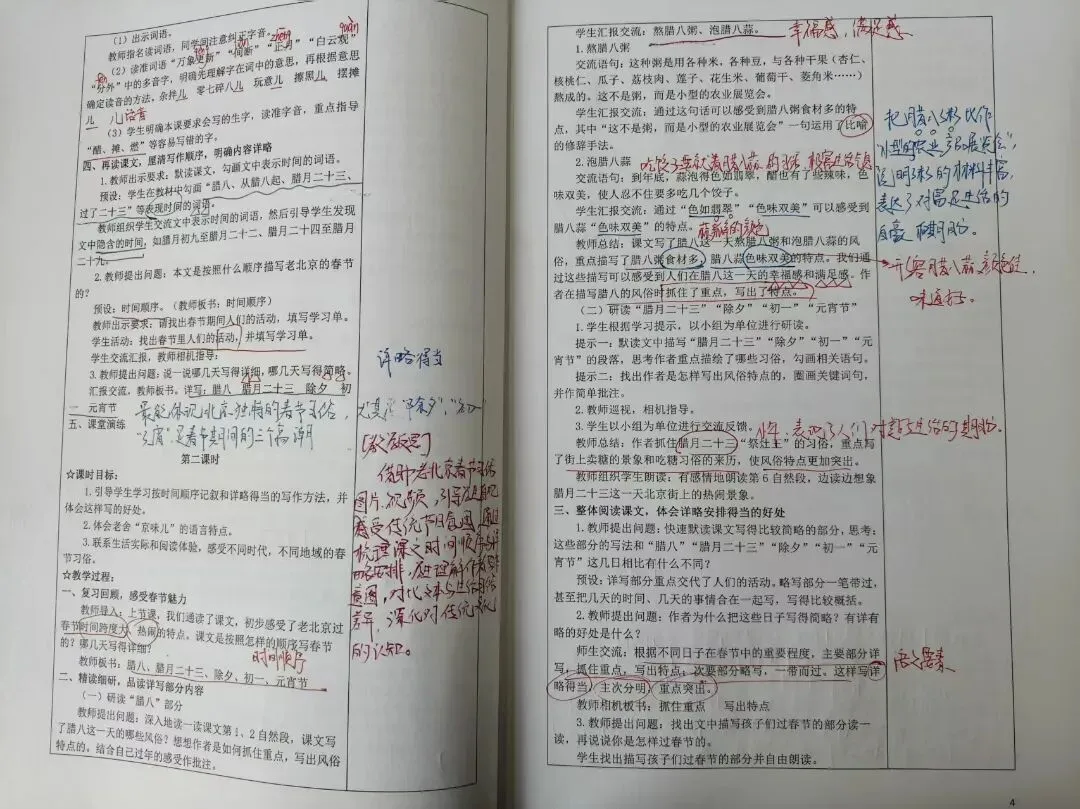 （1）出示词语。
教师指名读词语，同学间注意纠正字音。
（2）读准词语“万象更新”“间断”“正月”“白云观”
“分外”中的多音字，明确先理解字在词中的意思，再根据意思
确定读音的方法，杂拌儿 零七碎八儿 玩意儿 擦黑儿 摆摊
儿 儿话音
（3）学生明确本课要求会写的生字，读准字音，重点指导
“醋、摊、燃”等容易写错的字。
四、再读课文，厘清写作顺序，明确内容详略
1.教师出示要求：默读课文，勾画文中表示时间的词语。
预设：学生在教材中勾画“腊八、从腊八起、腊月二十三、
过了二十三”等表现时间的词语。
教师组织学生交流文中表示时间的词语，然后引导学生发现
文中隐含的时间，如腊月初九至腊月二十二、腊月二十四至腊月
二十九。
2.教师提出问题：本文是按照什么顺序描写老北京的春节
的？
预设：时间顺序。（教师板书：时间顺序）
教师出示要求：请找出春节期间人们的活动，填写学习单。
学生活动：找出春节里人们的活动，并填写学习单。
学生交流汇报，教师相机指导：
3.教师提出问题：说一说哪几天写得详细，哪几天写得简略。
汇报交流，教师板书。详写：腊八 腊月二十三 除夕 初
一 元宵节
详略得当
最能体现北京独特的春节习俗，尤其是“除夕”，“初一”
“元宵”是春节期间的三个高潮
五、课堂演练
第二课时
☆课时目标：
1.引导学生学习按时间顺序记叙和详略得当的写作方法，并
体会这样写的好处。
2.体会老舍“京味儿”的语言特点。
3.联系生活实际和阅读体验，感受不同时代，不同地域的春
节习俗。
☆教学过程：
一、复习回顾，感受春节魅力
教师导入：上节课，我们通读了课文，初步感受了老北京过
春节时间跨度大、热闹的特点。课文是按照怎样的顺序写春节
的？哪几天写得详细？
时间顺序
教师板书：腊八、腊月二十三、除夕、初一、元宵节
二、精读细研，品读详写部分内容
（一）研读“腊八”部分
教师提出问题：深入地读一读课文第1、2自然段，课文写
了腊八这一天的哪些风俗？想想作者是如何抓住重点，写出风俗
特点的。结合自己过年的感受作批注。
借助老北京春节习俗
图片、视频，引导
感受传统节日氛围，通过
梳理课文时间顺序与详
略安排，理解作者
意图，对比文本与生活
差异，深化对传统文化
的认知。
学生汇报交流：熬腊八粥、泡腊八蒜。
幸福感，满足感
1.熬腊八粥
交流语句：这种粥是用各种米，各种豆，与各种干果（杏仁、
核桃仁、瓜子、荔枝肉、莲子、花生米、葡萄干、菱角米……）
熬成的。这不是粥，而是小型的农业展览会。
学生汇报交流：通过这句话可以感受到腊八粥食材多的特
点，其中“这不是粥，而是小型的农业展览会”一句运用了比喻
的修辞手法。
把腊八粥比作
“小型的农业产品展览会”，
说明粥的材料丰富，
表达了对富足生活的
自豪和期盼。
2.泡腊八蒜
交流语句：到年底，蒜泡得色如翡翠，醋也有了些辣味，色
味双美，使人忍不住要多吃几个饺子。
学生汇报交流：通过“色如翡翠”“色味双美”可以感受到
腊八蒜“色味双美”的特点。
教师总结：课文写了腊八这一天熬腊八粥和泡腊八蒜的风
俗，重点描写了腊八粥食材多、腊八蒜色味双美的特点。我们通
过这些描写可以感受到人们在腊八这一天的幸福感和满足感。作
者在描写腊八的风俗时抓住了重点，写出了特点。
形容腊八蒜颜色佳，
味道好。
（二）研读“腊月二十三”“除夕”“初一”“元宵节”
1.学生根据学习提示，以小组为单位进行研读。
提示一：默读文中描写“腊月二十三”“除夕”“初一”“元
宵节”的段落，思考作者重点描绘了哪些习俗，勾画相关语句。
提示二：找出作者是怎样写出风俗特点的，圈画关键词句，
并作简单批注。
2.教师巡视，相机指导。
3.学生以小组为单位进行交流反馈。
小年：表现了人们对新生活的期盼。
教师总结：作者抓住腊月二十三“祭灶王”的习俗，重点写
了街上卖糖的景象和吃糖习俗的来历，使风俗特点更加突出。
教师组织学生朗读：有感情地朗读第6自然段，边读边想象
腊月二十三这一天北京街上的热闹景象。
三、整体阅读课文，体会详略安排得当的好处
1.教师提出问题：快速默读课文写得比较简略的部分，思考：
这些部分的写法和“腊八”“腊月二十三”“除夕”“初一”“元
宵节”这几日相比有什么不同？
预设：详写部分重点交代了人们的活动。略写部分一笔带过，
甚至把几天的时间、几天的事情合在一起写，写得比较概括。
2.教师提出问题：作者为什么把这些日子写得简略？有详有
略的好处是什么？
师生交流：根据不同日子在春节中的重要程度，主要部分详
写，抓住重点，写出特点；次要部分略写，一带而过。这样写详
略得当，主次分明，重点突出。
语文要素
教师相机板书：抓住重点 写出特点
3.教师提出问题：找出文中描写孩子们过春节的部分读一
读，再说说你是怎样过春节的。
学生找出描写孩子们过春节的部分并自由朗读。
4